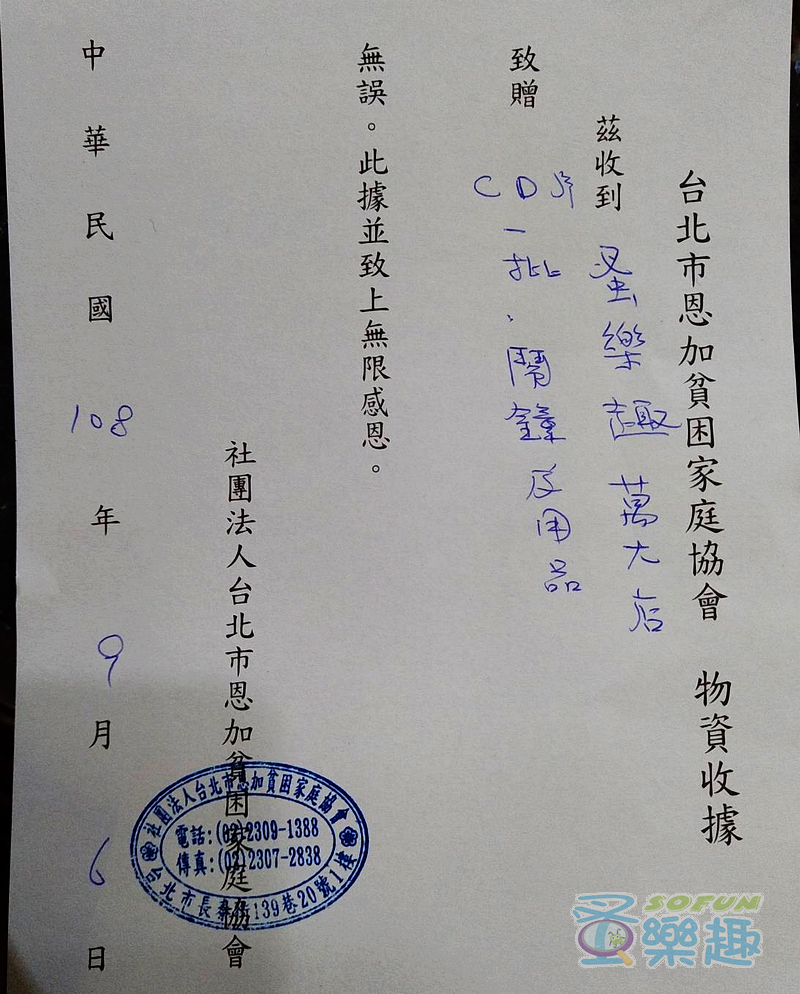 台北市恩加貧困家庭協會 物資收據
茲收到 蚤樂趣萬大店
致贈 CD片一批、鬧鐘及用品
無誤。此據並致上無限感恩。
社團法人台北市恩加貧困家庭協會
中華民國 108 年 9 月 6 日
社團法人台北市恩加貧困家庭協會
電話:(02)2309-1388
傳真:(02)2307-2838
台北市長泰街139巷20號1樓
SOFUN
蚤樂趣